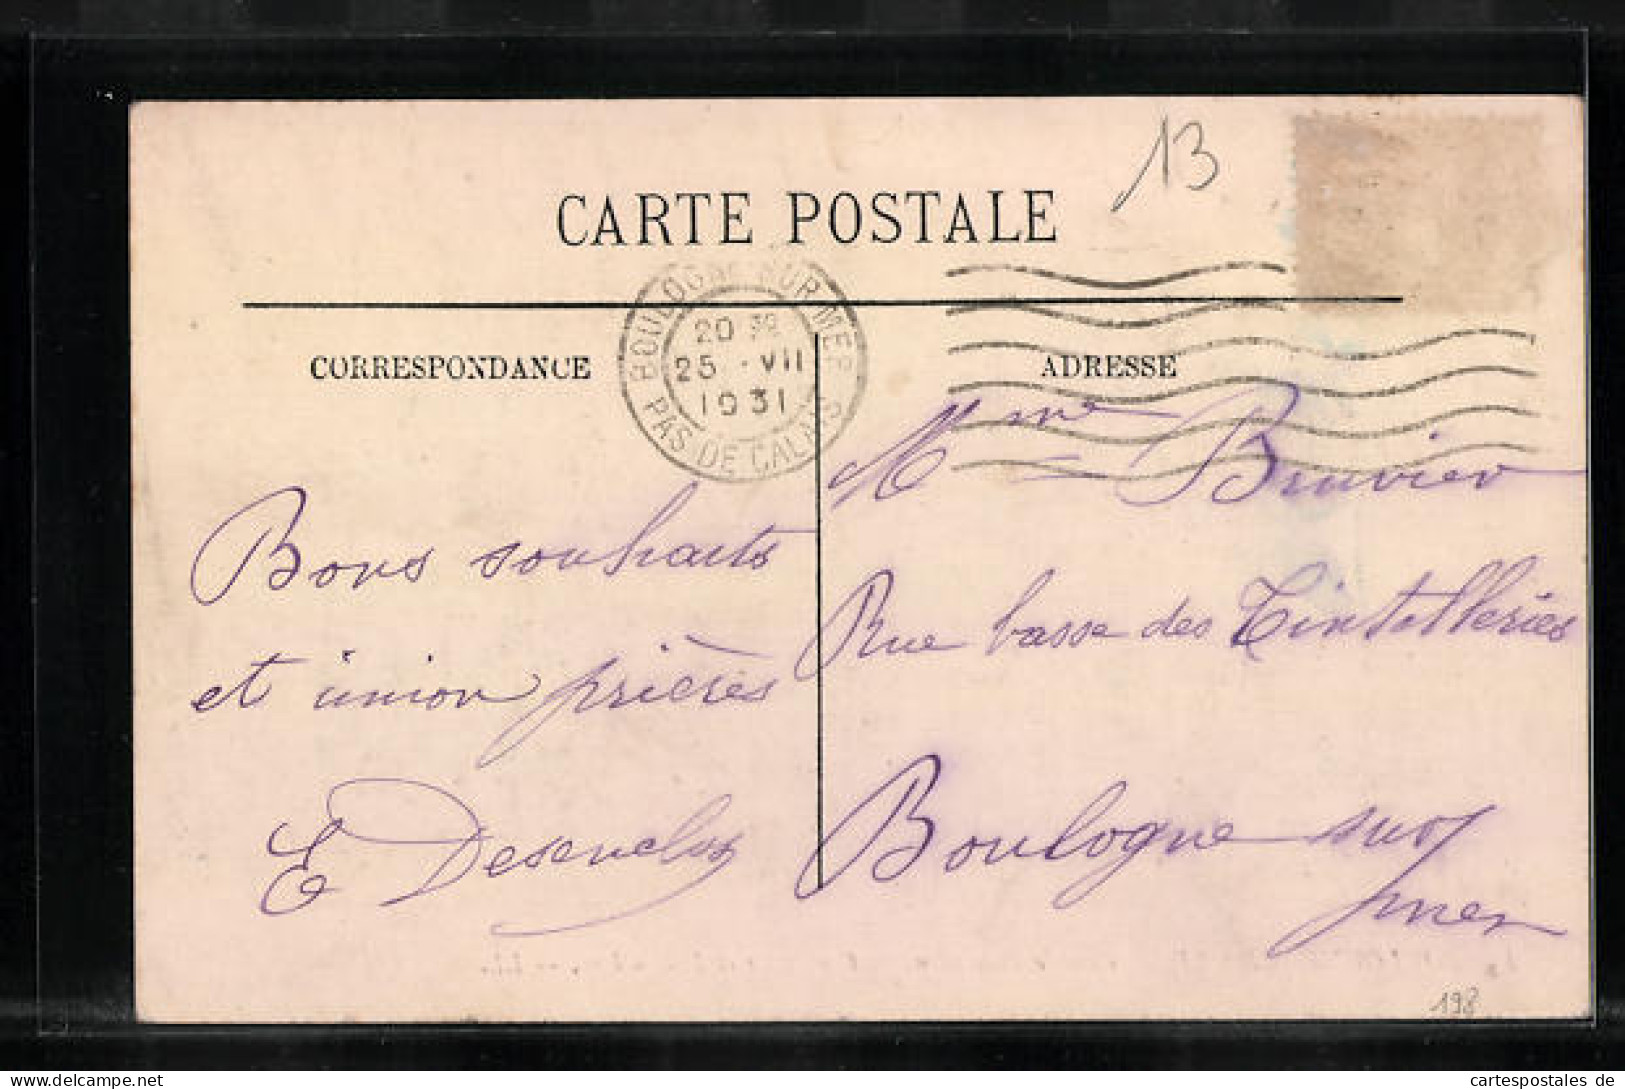 13
CARTE POSTALE
BOULOGNE SUR MER
20 30
25 -VII
1931
PAS DE CALAIS
CORRESPONDANCE
ADRESSE
Bons souhaits
et union prières
E Desenclos
Mme Bruvier
Rue basse des Tintelleries
Boulogne sur
mer
198
delcampe.net
cartespostales de